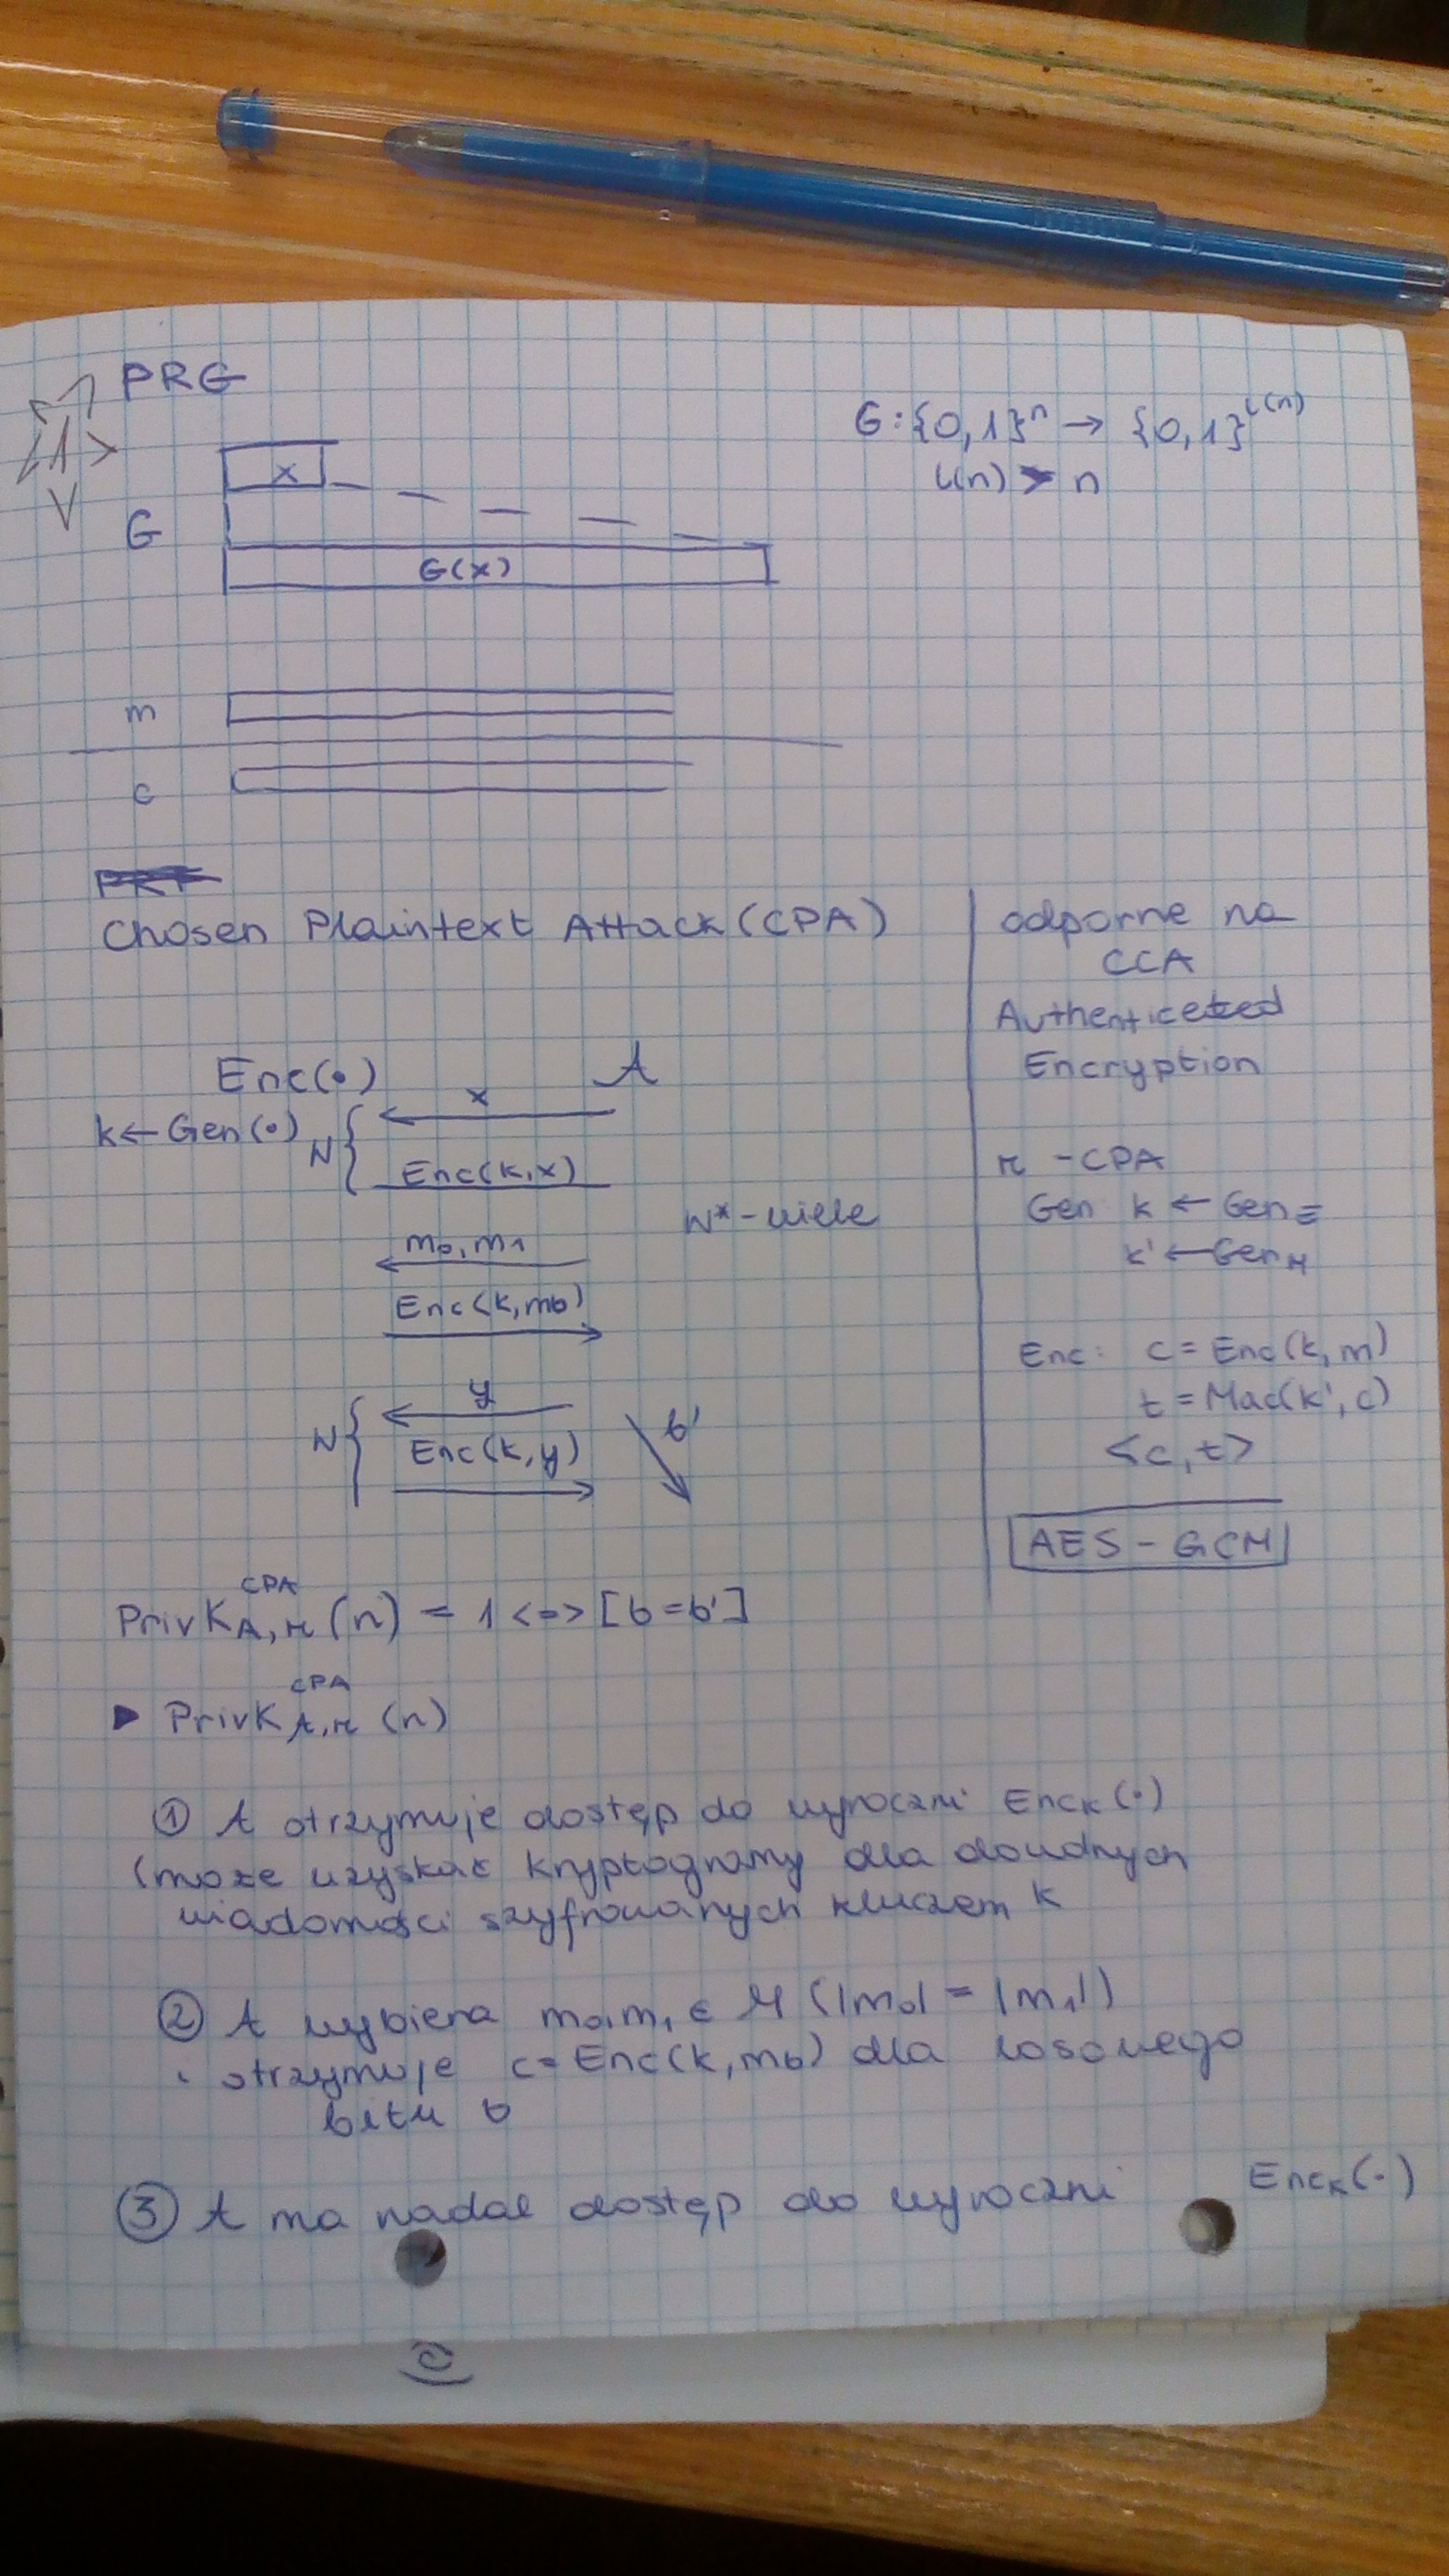 PRG
G:{0,1}ⁿ → {0,1}^l(n)
l(n) > n
x
G
G(x)
m
c
Chosen Plaintext Attack (CPA)
Enc(•) A
k←Gen(•)
x
N{
Enc(k,x)
N* - wiele
m₀, m₁
Enc(k,mb)
y
N{
Enc(k,y)
b'
odporne na
CCA
Authenticated
Encryption
π - CPA
Gen k ← Gen_E
k' ← Gen_M
Enc: c = Enc(k, m)
t = Mac(k', c)
<c, t>
AES - GCM
PrivK^CPA_A,π (n) = 1 <=> [b = b']
► PrivK^CPA_A,π (n)
① A otrzymuje dostęp do wyroczni Enc_K(·)
(może uzyskać kryptogramy dla dowolnych
wiadomości szyfrowanych kluczem k
② A wybiera m₀,m₁ ∈ M (|m₀| = |m₁|)
i otrzymuje c = Enc(k, mb) dla losowego
bitu b
③ A ma nadal dostęp do wyroczni Enc_K(·)